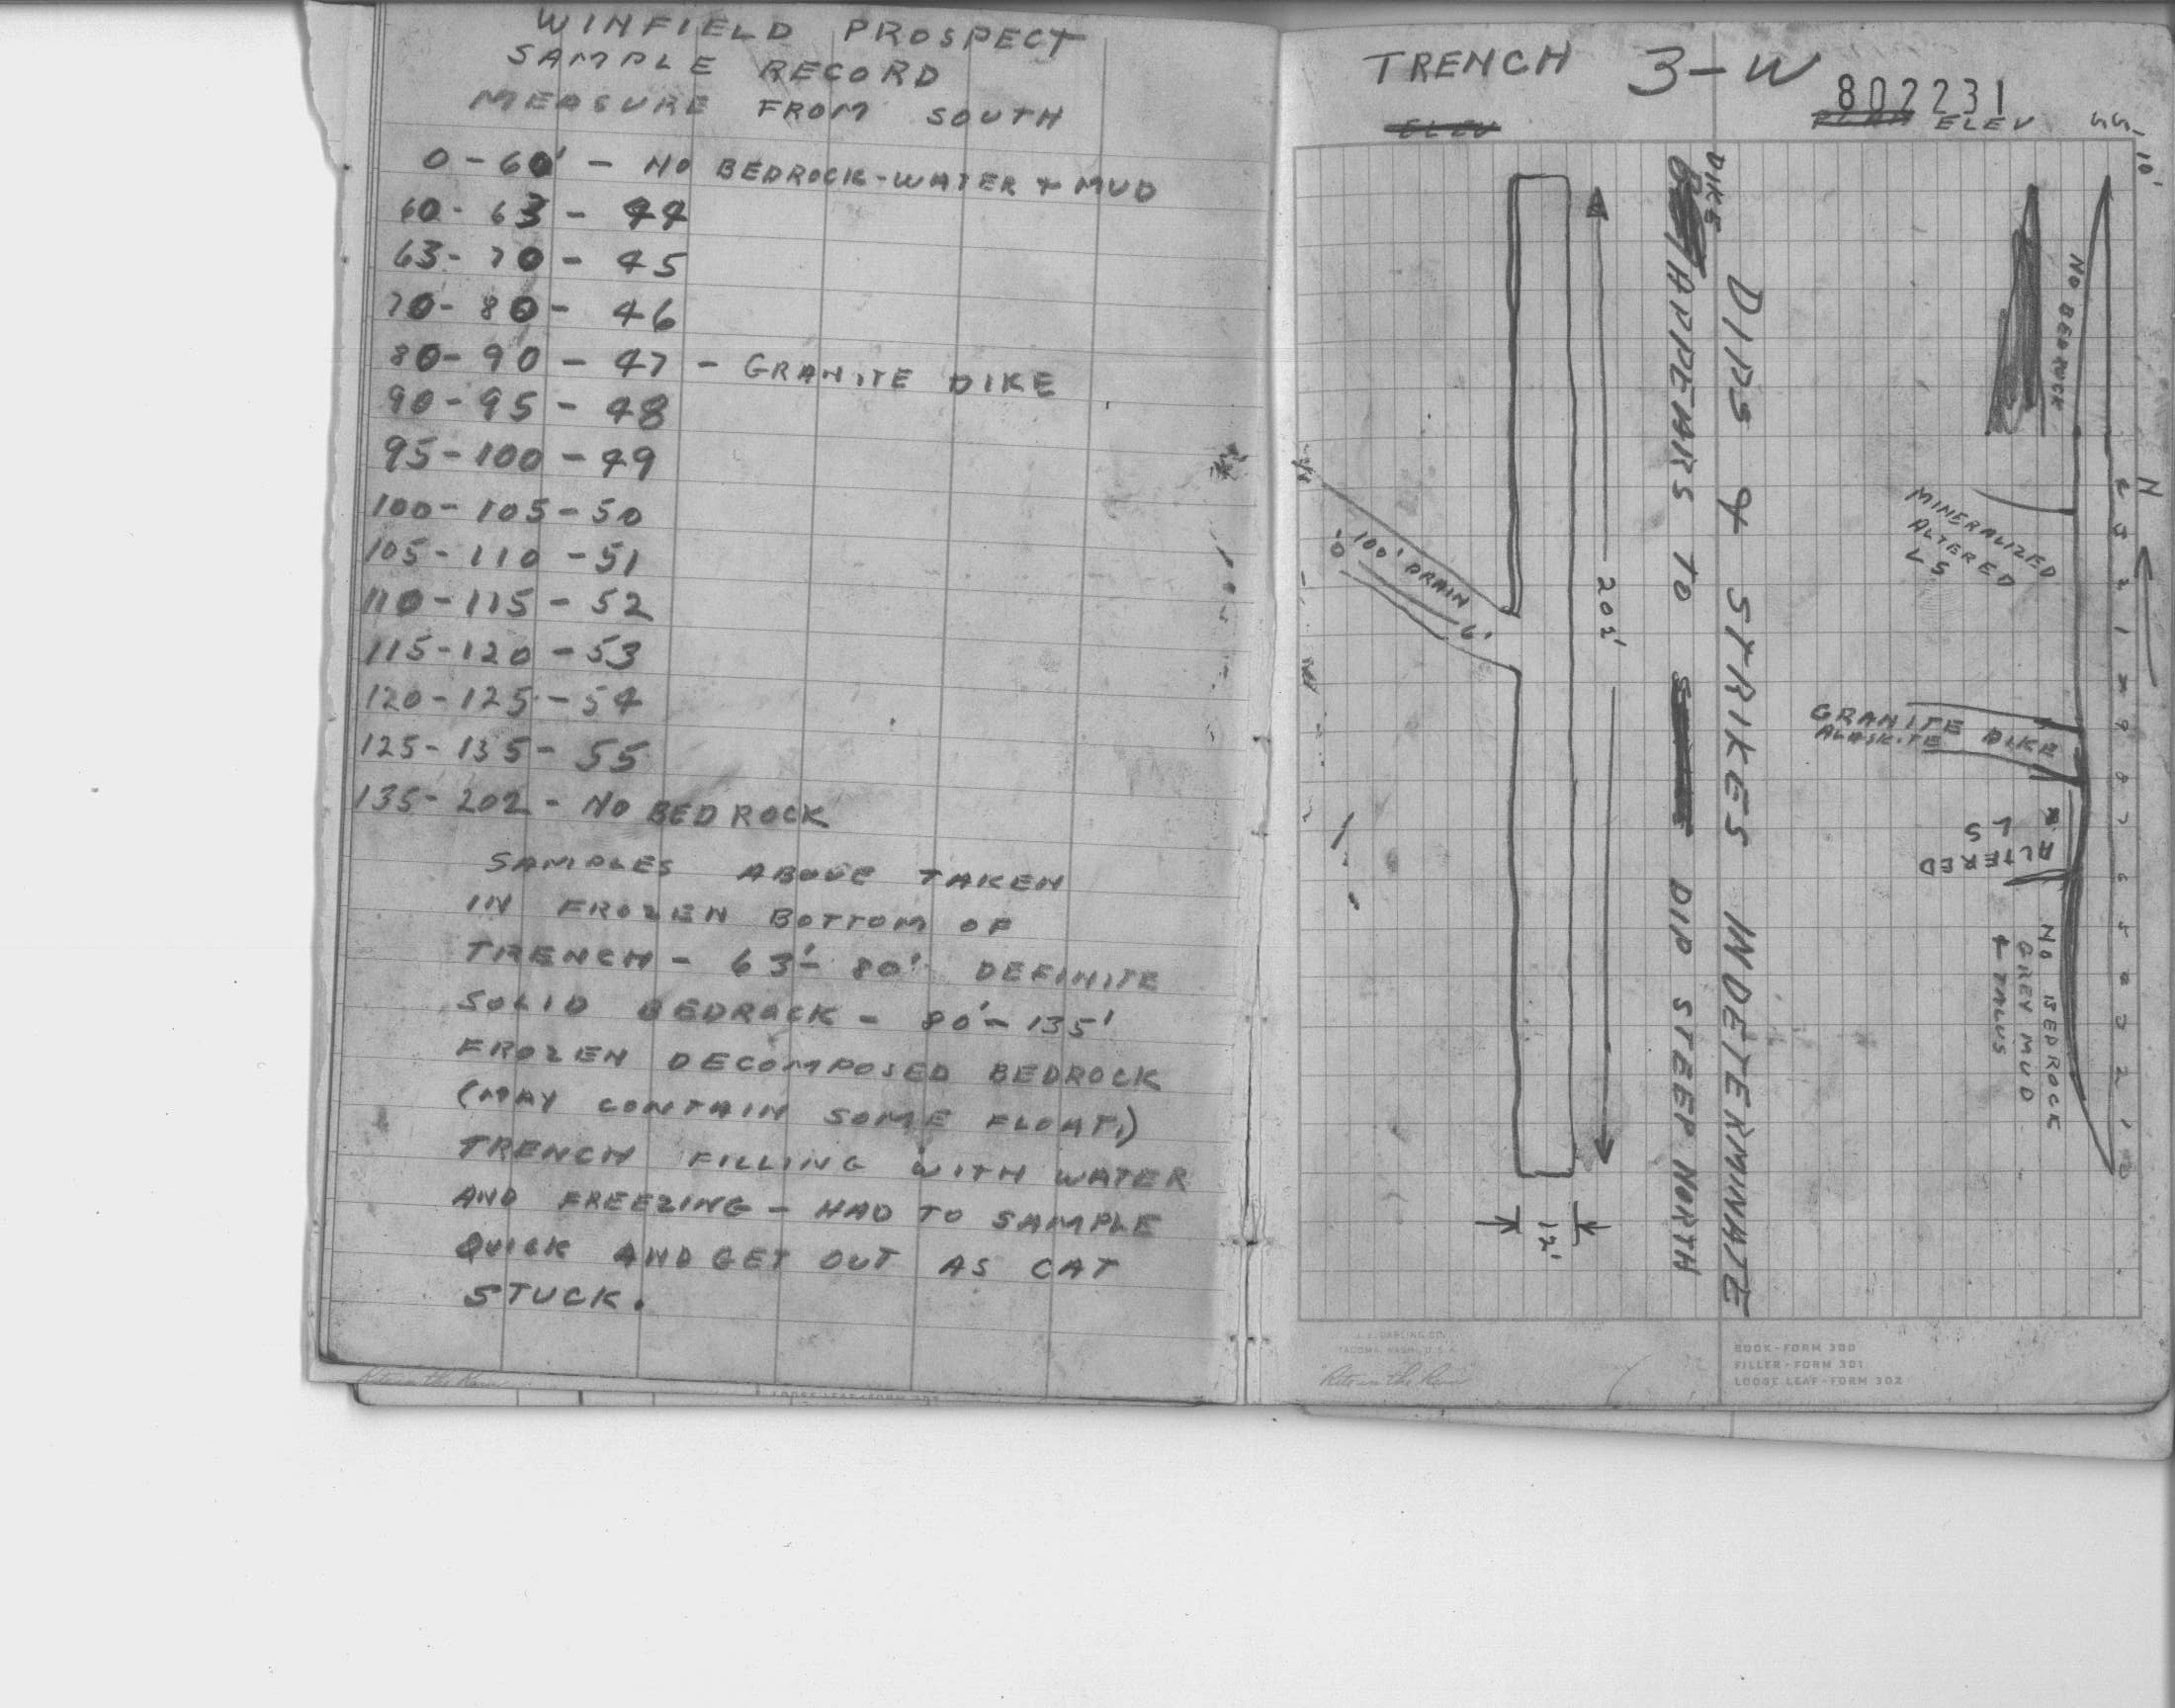 WINFIELD PROSPECT
SAMPLE RECORD
MEASURE FROM SOUTH
0-60' - NO BEDROCK-WATER + MUD
60-63 - 44
63-70 - 45
70-80 - 46
80-90 - 47 - GRANITE DIKE
90-95 - 48
95-100 - 49
100-105-50
105-110-51
110-115-52
115-120-53
120-125-54
125-135-55
135-202 - NO BEDROCK
SAMPLES ABOVE TAKEN
IN FROZEN BOTTOM OF
TRENCH - 63'-80' DEFINITE
SOLID BEDROCK - 80'-135'
FROZEN DECOMPOSED BEDROCK
(MAY CONTAIN SOME FLOAT.)
TRENCH FILLING WITH WATER
AND FREEZING - HAD TO SAMPLE
QUICK AND GET OUT AS CAT
STUCK.
Rite in the Rain
TRENCH 3-W
802231
ELEV
ELEV
10'
N
NO BEDROCK
MINERALIZED
ALTERED
LS
GRANITE DIKE
ALASKITE
ALTERED
LS
NO BEDROCK
GREY MUD
& TALUS
DIPS & STRIKES INDETERMINATE
DIKE
APPEARS TO DIP STEEP NORTH
202'
100' DRAIN
6'
12'
J. L. DARLING CO.
TACOMA, WASH., U.S.A.
"Rite in the Rain"
BOOK-FORM 300
FILLER-FORM 301
LOOSE LEAF-FORM 302